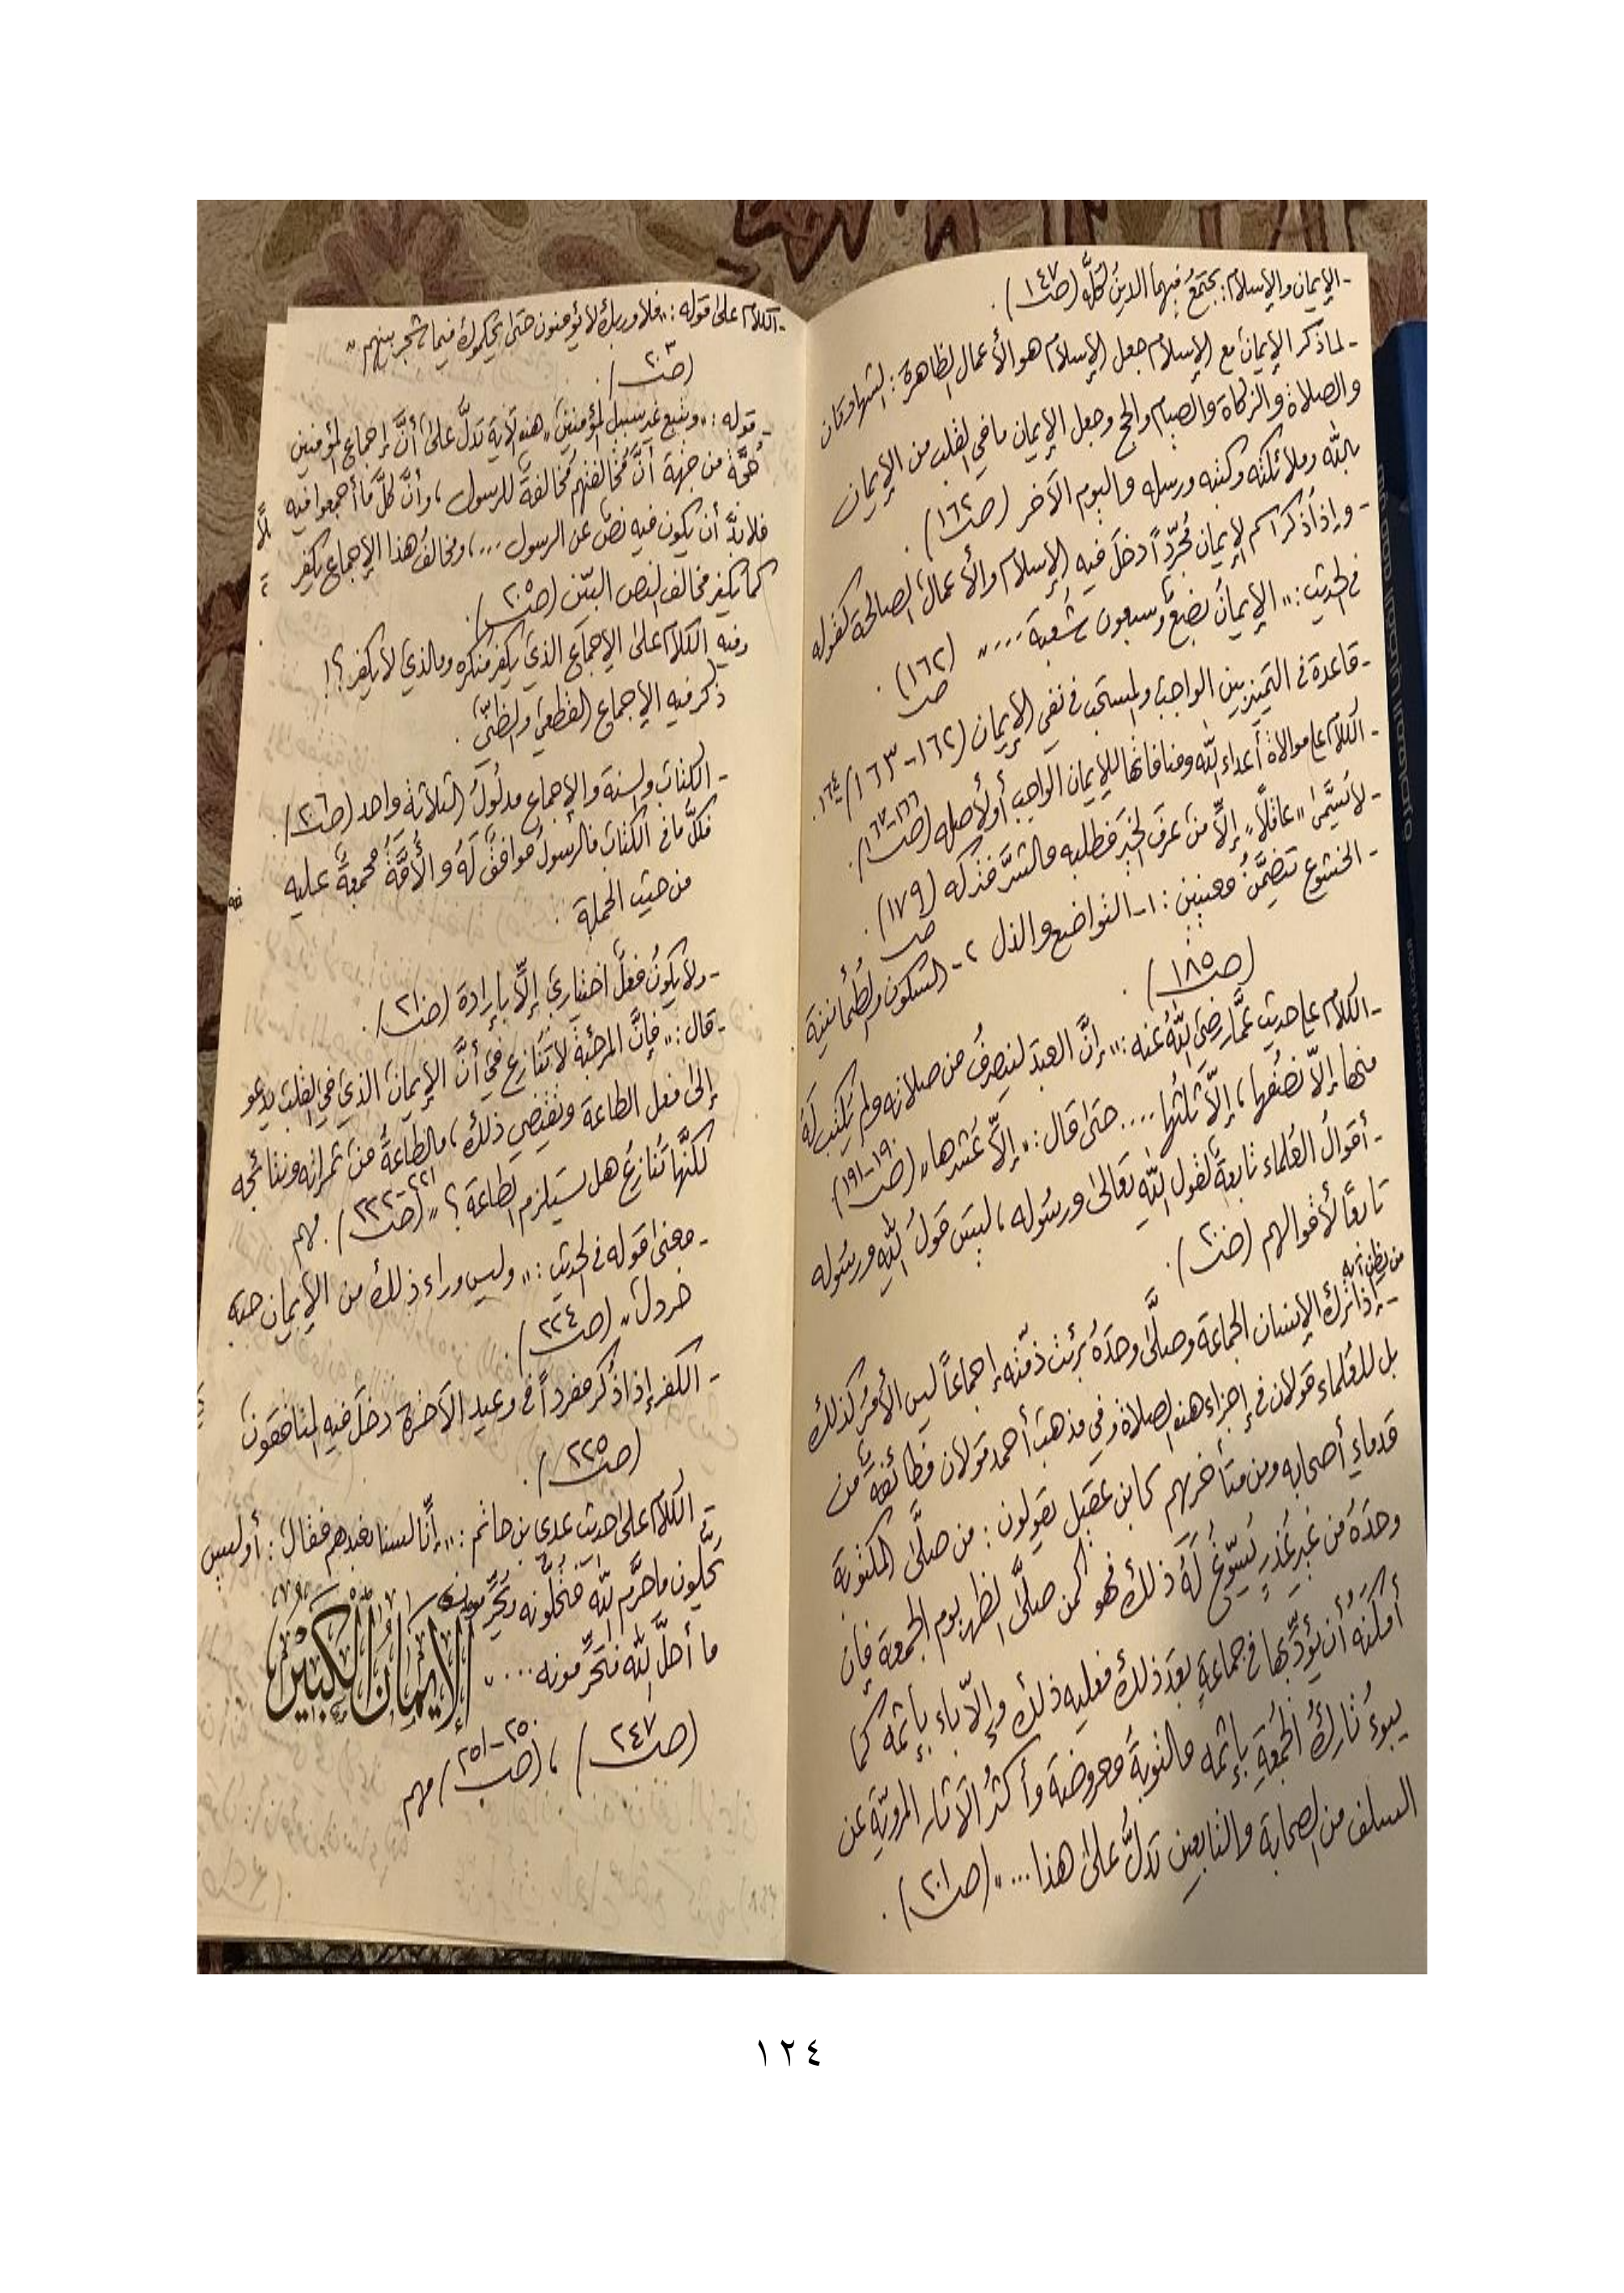 - الإيمان والإسلام: يجتمعُ فيهما الدينُ كلُّه (ص١٤٧).
- لما ذكر الإيمان مع الإسلام جعل الإسلام هو الأعمال الظاهرة: الشهادتان
والصلاة والزكاة والصيام والحج وجعل الإيمان ما في القلب من الإيمان
بالله وملائكته وكتبه ورسله واليوم الآخر (ص١٦٢).
- وإذا ذكر اسم الإيمان مُجرّداً دخلَ فيه الإسلام والأعمال الصالحة كقوله
في الحديث: "الإيمانُ بضعٌ وسبعون شُعبة ...." (ص١٦٢).
- قاعدة في التمييز بين الواجب والمستحب في نفي الإيمان (١٦٢-١٦٣)/١٦٤.
- الكلام على موالاة أعداء الله ومنافاتها للإيمان الواجب أو لأصله (ص١٦٦-١٦٧).
- لا يُسمَّى "عاقلًا" إلَّا من عرف الخير فطلبه والشرَّ فتركه (ص١٧٩).
- الخشوع تتضمَّنُ معنيين: ١- التواضع والذل ٢- السكون والطُّمأنينة
(ص١٨٥).
- الكلام على حديث عمَّار رضيَ اللهُ عنه: "إنَّ العبدَ لينصرفُ من صلاته ولم يُكتب لَهُ
منها إلَّا نصفُها، إلَّا ثلثُها .... حتى قال: "إلَّا عُشرها" (ص١٩٠-١٩١).
- أقوالُ العُلماء تابعةٌ لقول اللهِ تعالى ورسُوله، ليسَ قولُ اللهِ ورسُوله
تابعًا لأقوالهم (ص٢٠٠).
من يظن أنه
- إذا ترك الإنسان الجماعة وصلَّى وحدَهُ برئت ذمّته إجماعاً ليس الأمرُ كذلك
بل للعُلماء قولان في إجزاء هذه الصلاة وفي مذهب أحمد قولان فطائفةٌ من
قدماءِ أصحابه ومن متأخريهم كابن عقيل يقولون: من صلَّى المكتوبة
وحدَهُ من غيرِ عُذرٍ يُسوّغُ لَهُ ذلك فهو كمن صلَّى الظهر يوم الجمعة فإن
أمكنهُ أن يؤدِّيها في جماعةٍ بعد ذلك فعليه ذلك وإلَّا باء بإثمه كما
يبوءُ تاركُ الجُمُعةِ بإثمه والتوبةُ معروضة وأكثرُ الآثار المرويّة عن
السلف من الصحابة والتابعين تدلُّ على هذا ..." (ص٢٠١).
- الكلام على قوله: "فلا وربك لا يؤمنون حتى يحكموك فيما شجر بينهم"
(ص٢٠٣).
- قوله: "ويتبع غير سبيل المؤمنين" هذه الآية تدلُّ على أنَّ إجماع المؤمنين
حُجَّة من جهة أنَّ مُخالفتهم مُخالفةٌ للرسول، وأنَّ كلَّ ما أجمعوا فيه
فلابدَّ أن يكون فيه نصٌ عن الرسول ...، ومخالفُ هذا الإجماع يكفر
كما يكفر مخالف النص البيّن (ص٢٠٥).
وفيه الكلام على الإجماع الذي يكفر منكره والذي لا يكفر؟!
ذكر فيه الإجماع القطعي والظنّي.
- الكتاب والسنة والإجماع مدلُولُ الثلاثة واحد (ص٢٠٦).
فكلُّ ما في الكتاب فالرسولُ موافقٌ لَهُ والأُمَّةُ مجمعةٌ عليه
من حيث الجملة.
- ولا يكونُ فعلٌ اختياري إلَّا بإرادة (ص٢١٠).
- قال: "فإنَّ المرجئةَ لا تُنازع في أنَّ الإيمان الذي في القلب يدعو
إلى فعل الطاعة ويقتضي ذلك، والطاعةُ من ثمراته ونتائجه
لكنَّها تُنازعُ هل يستلزم الطاعة؟" (ص٢٢١-٢٢٢). مهم
- معنى قوله في الحديث: "وليس وراء ذلك من الإيمان حبة
خردل" (ص٢٢٤).
- الكفر إذا ذُكر مفرداً في وعيد الآخرة دخلَ فيه المنافقون
(ص٢٢٥).
- الكلام على حديث عدي بن حاتم: "إنَّا لسنا نعبدهم فقال: أوليس
يُحِلُّون ما حرَّم الله فتحلُّونه ويُحرِّمون
ما أحلَّ الله فتحرِّمونه ...."
الإيمان الكبير
(ص٢٤٧)، (ص٢٥٠-٢٥١) مهم
١٢٤